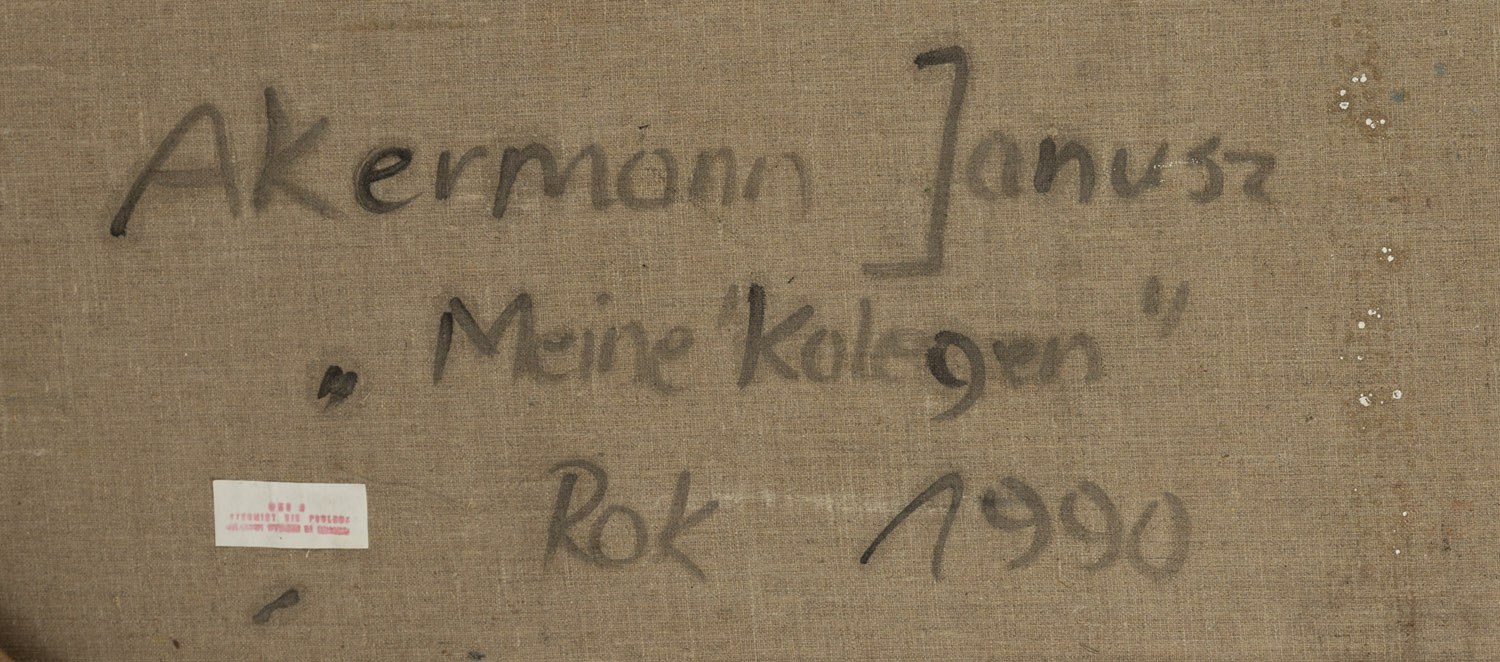 Akermann Janusz
„ Meine "Kolegen"
Rok 1990